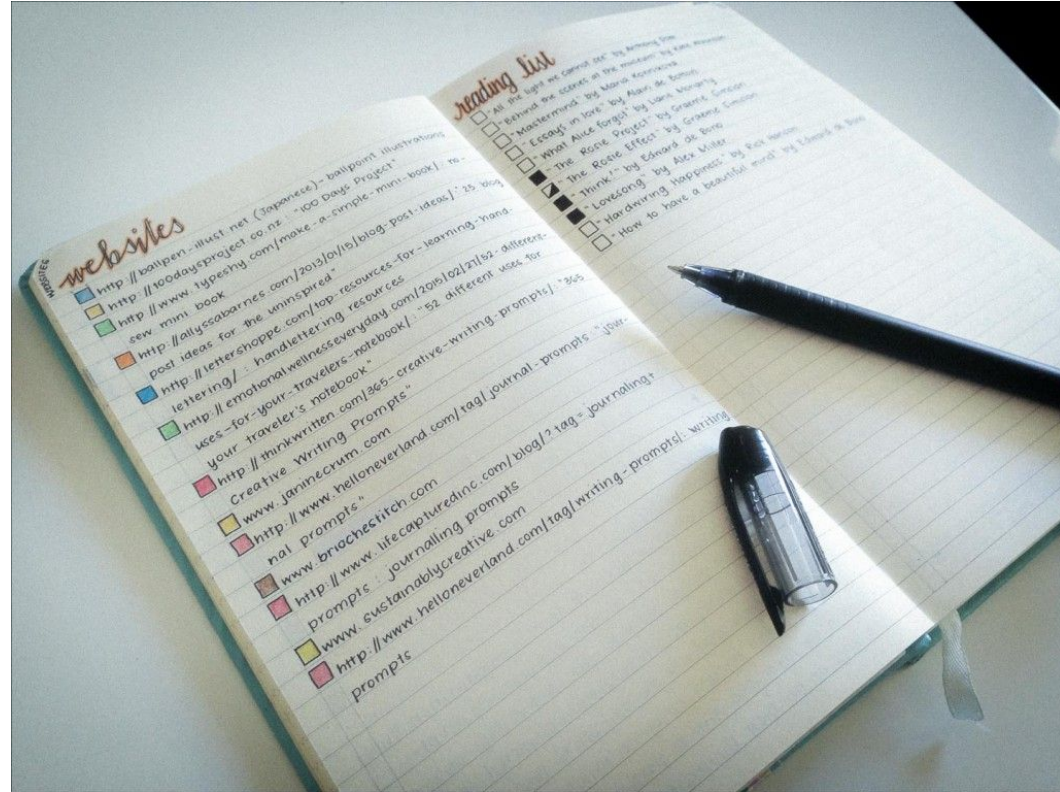 WEBSITES
websites
http://ballpen-illust.net (Japanece)-ballpoint illustrations
http://100daysproject.co.nz : "100 Days Project"
http://www.typeshy.com/make-a-simple-mini-book/: no-
sew mini book
http://allyssabarnes.com/2013/01/15/blog-post-ideas/ "25 blog
post ideas for the uninspired"
http://lettershoppe.com/top-resources-for-learning-hand-
lettering/ : handlettering resources
http://emotionalwellnesseveryday.com/2015/02/27/52-different-
uses-for-your-travelers-notebook/ : "52 different uses for
your traveler's notebook"
http://thinkwritten.com/365-creative-writing-prompts/ "365
Creative Writing Prompts"
www.janinecrum.com
http://www.helloneverland.com/tag/journal-prompts - "jour-
nal prompts"
www.briochestitch.com
http://www.lifecapturedinc.com/blog/?tag=journaling+
prompts : journalling prompts
www.sustainablycreative.com
http://www.helloneverland.com/tag/writing-prompts/: writing
prompts
reading list
"All the light we cannot see" by Anthony Doe
"Behind the scenes at the museum" by Kate Atkinson
"Mastermind" by Maria Konnikova
"Essays in love" by Alain de Botton
"What Alice forgot" by Liane Moriarty
"The Rosie Project" by Graeme Simsion
"The Rosie Effect" by Graeme Simsion
"Think!" by Edward de Bono
"Lovesong" by Alex Miller
"Hardwiring Happiness" by Rick Hanson
"How to have a beautiful mind" by Edward de Bono